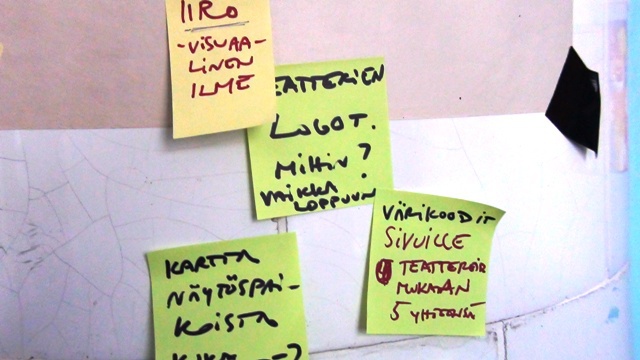 IIRO
-VISUAA-
LINEN
ILME
EATTERIEN
LOGOT.
MIHIN?
VAIKKA
LOPPUUN
VÄRIKOODIT
SIVUILLE
TEATTERIN
MUKAAN
5 YHTEENSÄ
KARTTA
NÄYTÖSPAI-
KOISTA